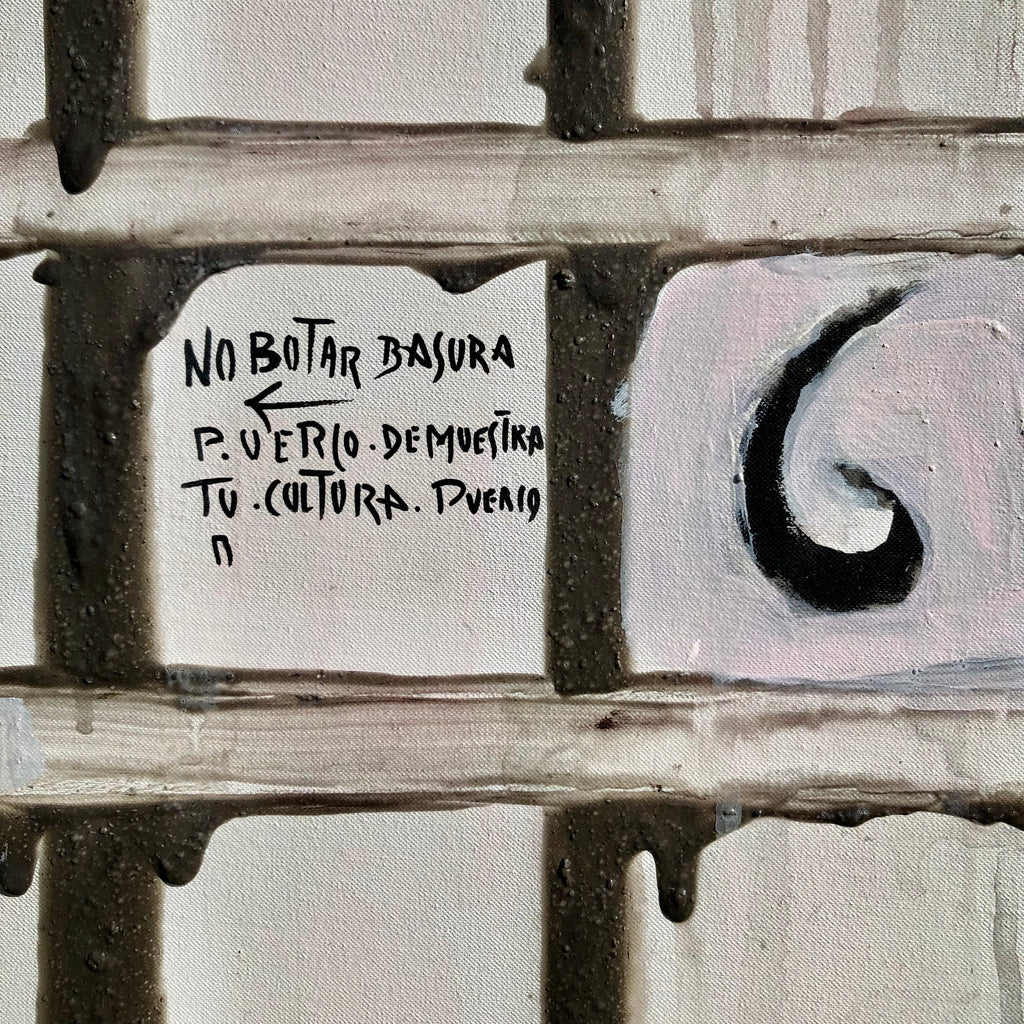 NO BOTAR BASURA
P.UERCO.DEMUESTRA
TU.CULTURA.PUERCO
n